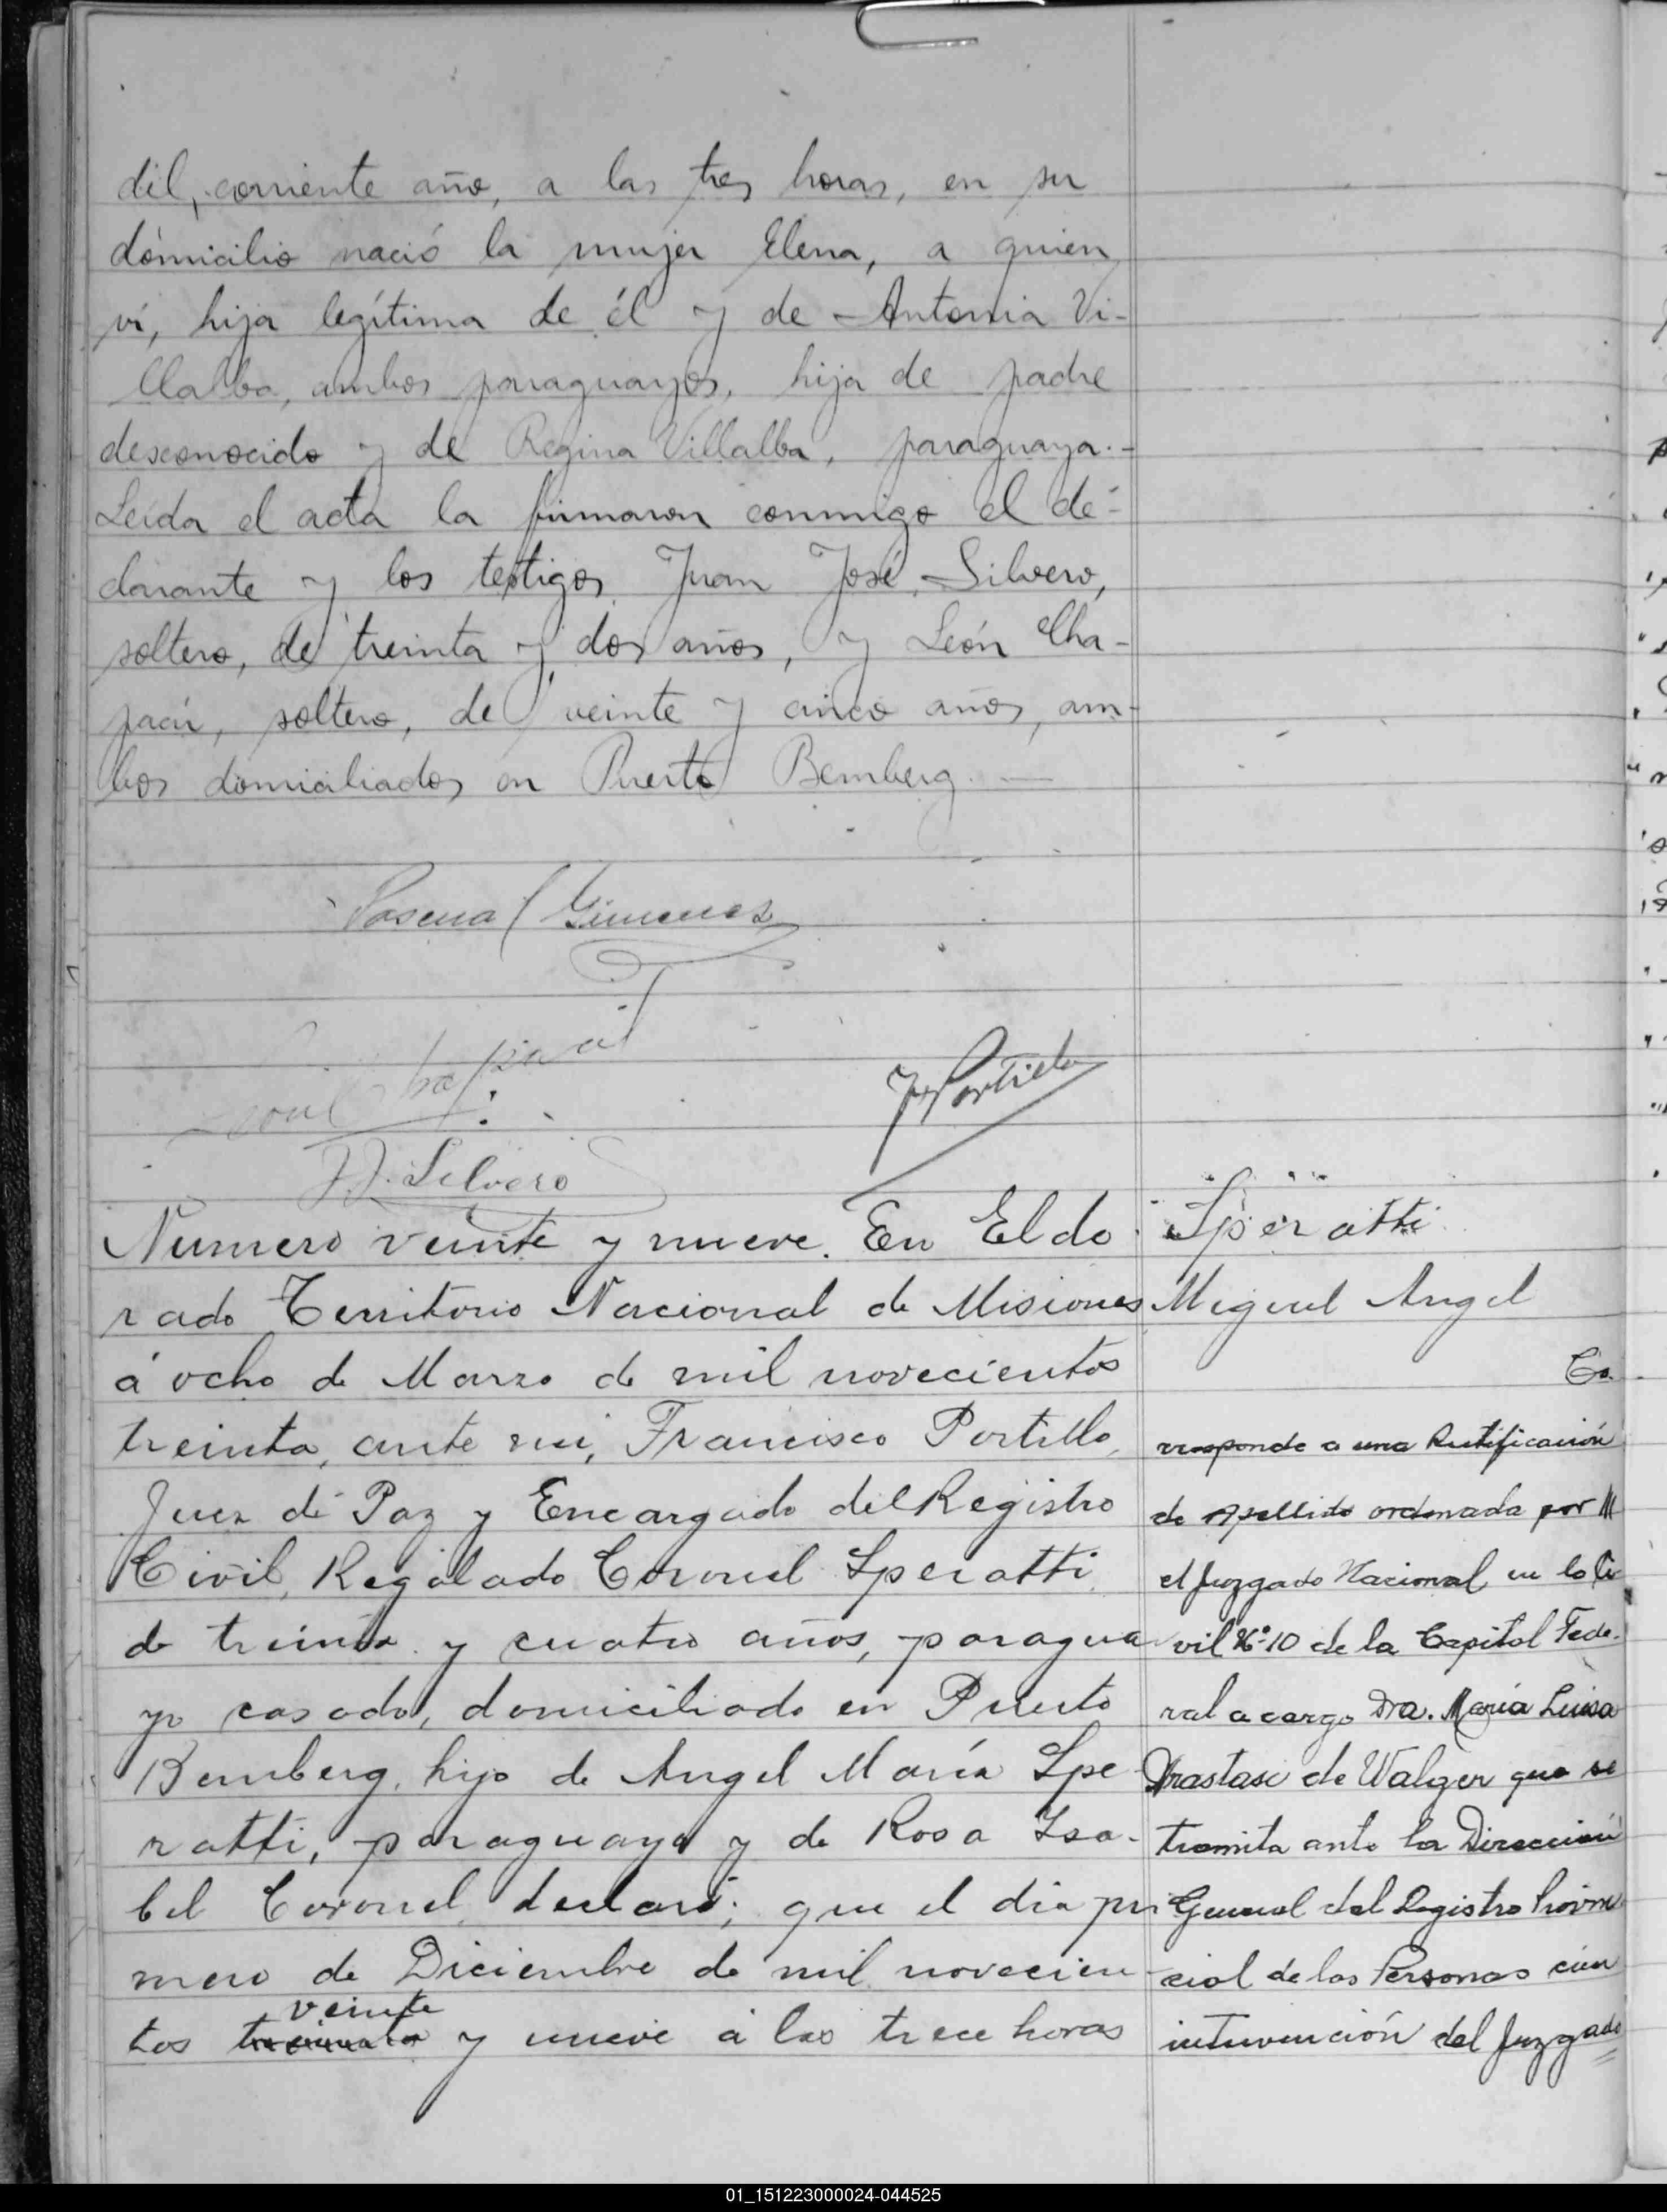 del, corriente año, a las tres horas, en su
domicilio nació la mujer Elena, a quien
ví, hija legítima de él y de Antonia Vi-
llalba, ambos paraguayos, hija de padre
desconocido y de Regina Villalba, paraguaya.-
Leída el acta la firmaron conmigo el de-
clarante y los testigos Juan José Silvero,
soltero, de treinta y dos años, y León Cha-
pai, soltero, de veinte y cinco años, am-
bos domiciliados en Puerto Bemberg. —
Gimenez
J. J. Silvero
Portillo
Numero veinte y nueve. En Eldo
rado Territorio Nacional de Misiones
á ocho de Marzo de mil novecientos
treinta, ante mi, Francisco Portillo,
Juez de Paz y Encargado del Registro
Civil, Regalado Coronel Speratti
de treinta y cuatro años, paragua
yo casado, domiciliado en Puerto
Bemberg, hijo de Angel María Spe
ratti, paraguayo y de Rosa Isa-
bel Coronel, declaró; que el dia pri
mero de Diciembre de mil novecien
veinte
tos treinta y nueve á las trece horas
Speratti
Miguel Angel
Co.
rresponde a una Rectificación
de Apellido ordenada por
el Juzgado Nacional en lo Ci
vil Nº 10 de la Capital Fede-
ral a cargo Dra. María Luisa
Anastasi de Walger que se
tramita ante la Dirección
General del Registro Provin
cial de las Personas con
intervención del Juzgado
01_151223000024-044525